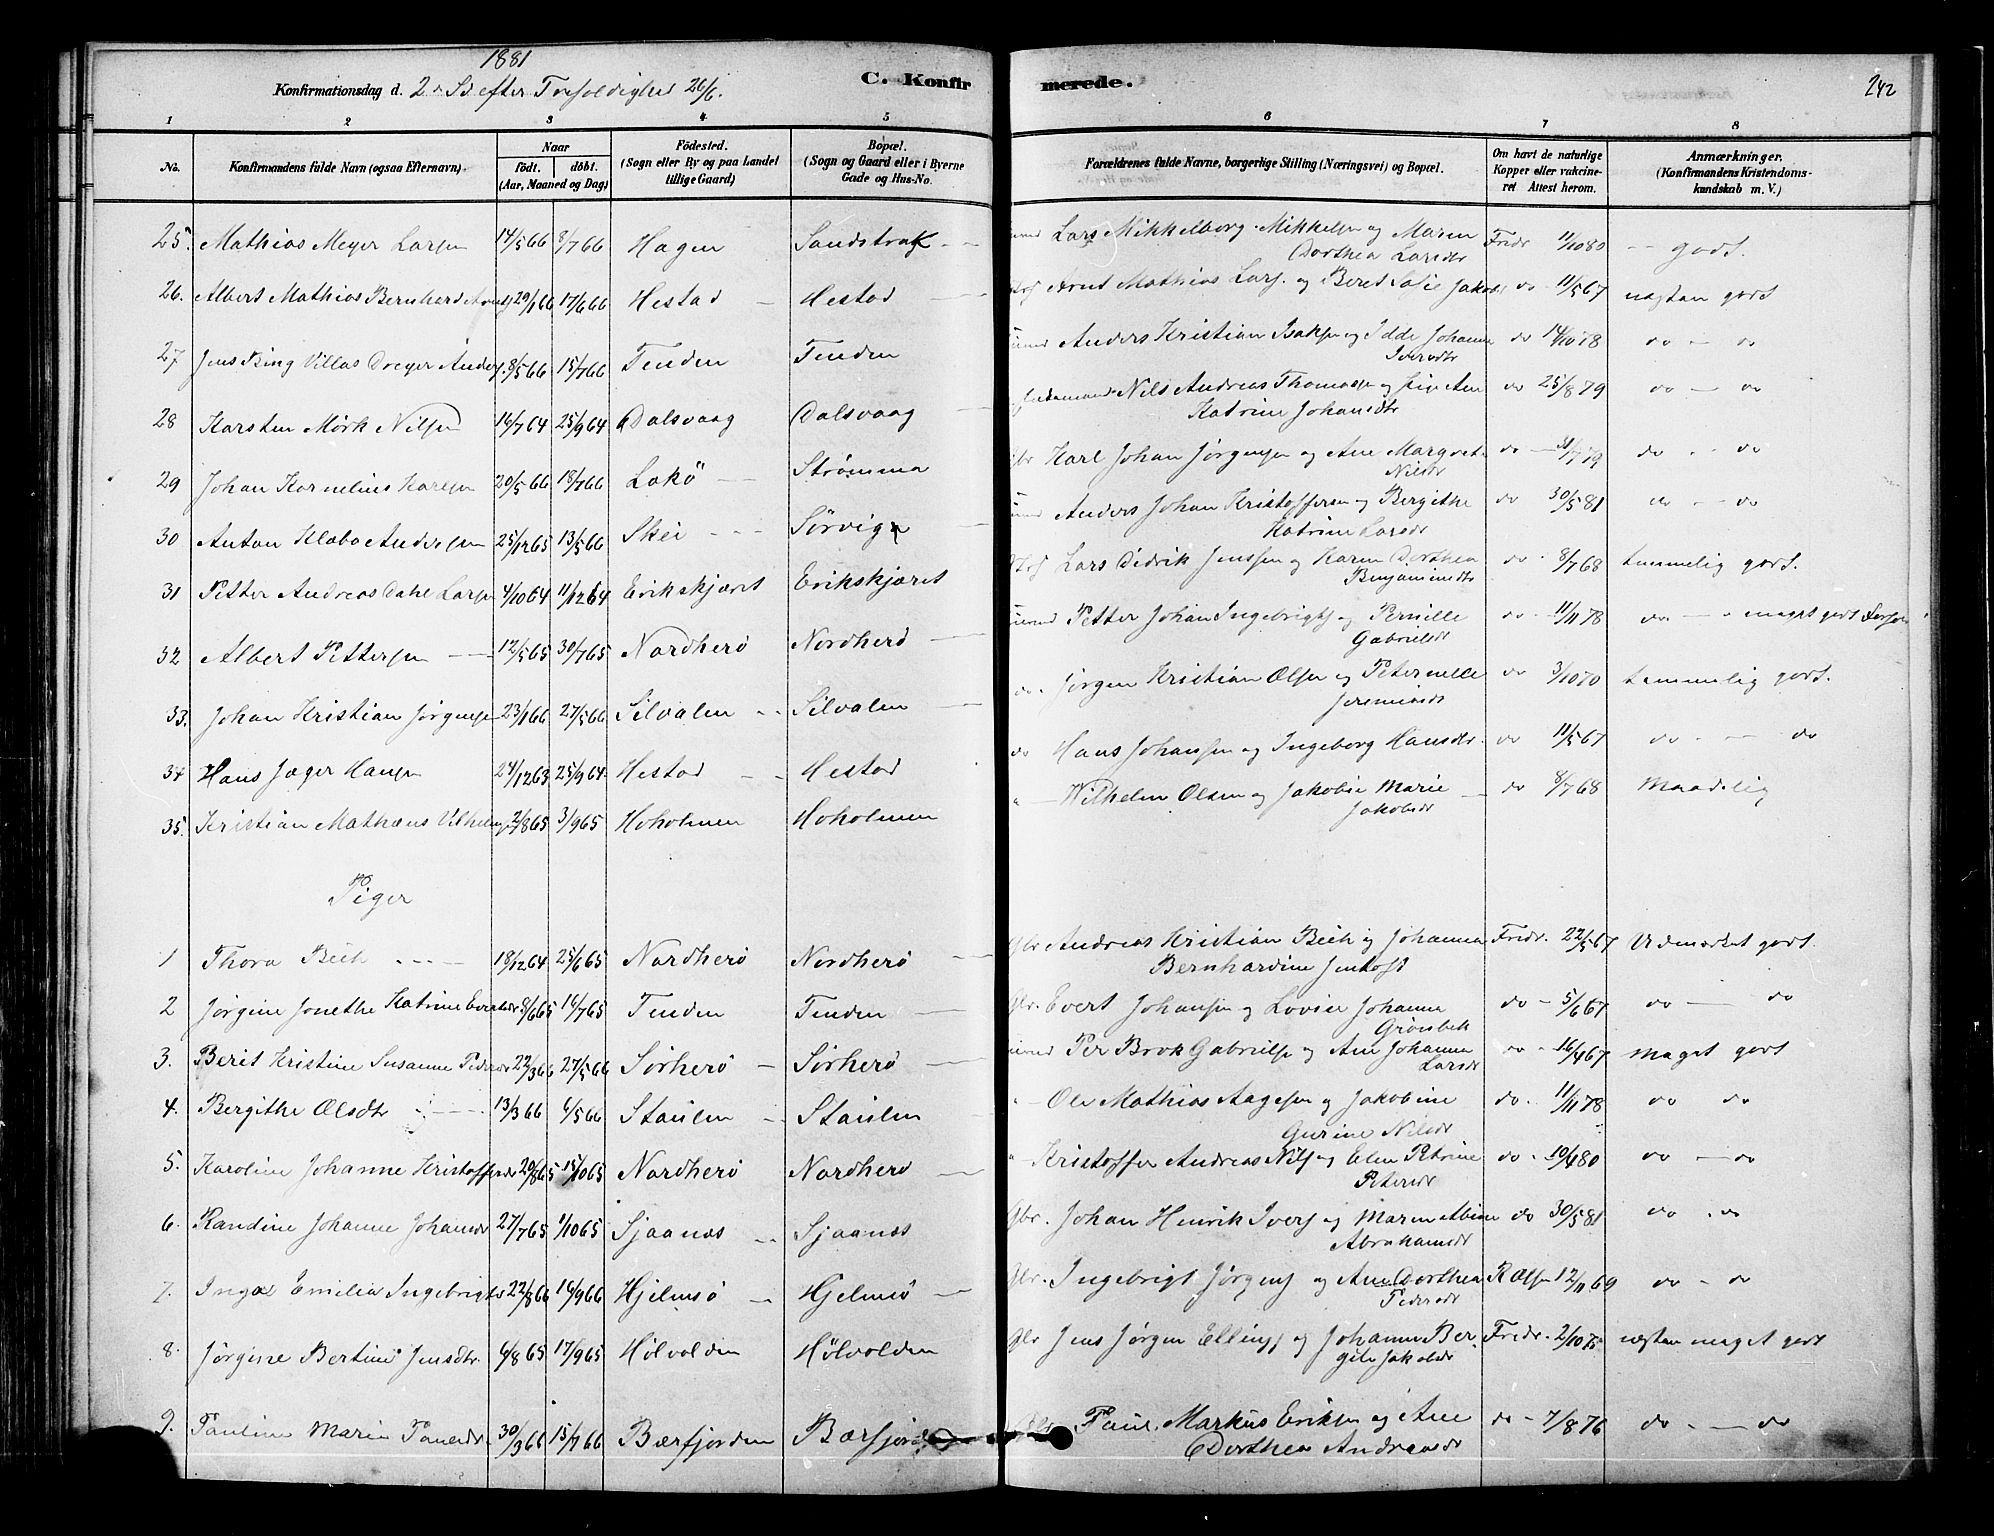 1881
Konfirmationsdag d. 2 S. efter Trefoldighed 26/6.
C. Konfirmerede.
242
1 2 3 4 5 6 7 8
No. Konfirmandens fulde Navn (ogsaa Efternavn). Naar født. døbt. (Aar, Maaned og Dag) Fødested. (Sogn eller By og paa Landet tillige Gaard) Bopæl. (Sogn og Gaard eller i Byerne Gade og Hus-No. Forældrenes fulde Navne, borgerlige Stilling (Næringsvei) og Bopæl. Om havt de naturlige Kopper eller vakcineret Attest herom. Anmærkninger. (Konfirmandens Kristendomskundskab m. V.)
25. Mathias Meyer Larsen 14/5 66 8/7 66 Hagen Sandstrak Lars Mikkelborg Mikkelsen og Maren Dorthea Larsdtr Fredr 11/10 80 godt.
26. Albert Mathias Bernhard 29/1 66 17/6 66 Hestad Hestad Arnt Mathias Lars. og Beret Sofie Jakobs do 11/5 67 næsten godt
27 Jens Bing Villas Dreyer Anders. 8/5 66 15/7 66 Tenden Tenden Anders Kristian Isaksen og Idde Johanna Iversdtr do 14/10 78 do - do
28 Karsten Mörk Nilsen 16/7 64 25/9 64 Dalsvaag Dalsvaag Nils Andreas Thomassen og Ane Katrine Johansdtr do 25/8 79 do - do
29 Johan Kornelius Karlsen 20/5 66 18/7 66 Lokö Strømma Karl Johan Jørgensen og Ane Margret Nilsdtr do 31/7 79 do - do
30 Anton Klæbo Andersen 25/12 65 13/5 66 Skei Sørvigen Anders Johan Kristoffersen og Bergithe Katrine Larsdtr do 30/5 81 do - do
31 Petter Andreas Dahl Larsen 4/10 64 11/12 64 Erikskjæret Erikskjæret Lars Didrik Jenssen og Karen Dorthea Benjamindtr do 8/7 68 temmelig godt.
32 Albert Pettersen 12/5 65 30/7 65 Nordherö Nordherö Petter Johan Ingebrigts og Pernille Gabrielsdtr do 11/11 78 do - meget godt
33. Johan Kristian Jörgensen 23/1 66 27/5 66 Silvalen Silvalen do. Jörgen Kristian Olsen og Peternelle Jeremiasdtr do 3/10 70 temmelig godt.
34 Hans Jæger Hansen 24/12 63 25/9 64 Hestad Hestad do Hans Johansen og Ingeborg Hansdtr. do 11/5 67 do - do
35. Kristian Mathæus Vilhelms. 2/8 65 3/9 65 Hoholmen Hoholmen Wilhelm Olsen og Jakobie Marie Jakobsdtr do 8/7 68 Maadelig
Piger
1 Thora Bech 18/12 64 25/6 65 Nordherö Nordherö Gbr Andreas Kristian Bech og Johanna Bernhardine Jentoft Fredr. 22/5 67 Udmærket godt.
2 Jørgine Jonethe Katrine Evertsdtr 8/6 65 16/7 65 Tenden Tenden Gbr. Evert Johansen og Lovise Johanna Grönbek do - 5/6 67 do - do
3. Berit Kristine Susanne Pedersdtr 22/3 66 27/5 66 Sörherö Sörherö Per Brok Gabrielsen og Ane Johanna Larsdtr do - 16/4 67 meget godt
4. Bergithe Olsdtr 13/3 66 6/5 66 Staulen Staulen Ole Mathias Aagesen og Jakobine Gurine Nilsdtr do. 11/11 78 do do
5. Karoline Johanne Kristoffersdtr 20/8 65 15/10 65 Nordherö Nordherö Kristoffer Andreas Nils. og Elen Petrine Petersdtr do - 10/4 80 do - do
6. Randine Johanne Johansdtr 27/7 65 1/10 65 Sjaanæs Sjaanæs Gbr. Johan Henrik Ivers. og Maren Albine Abrahamsdtr do 30/5 81 do . do
7. Inga Emilia Ingebrigtsdtr 22/8 66 16/9 66 Hjelmsö Hjelmsö Gbr. Ingebrigt Jörgens. og Ane Dorthea Pedersdtr R Olsen 12/11 69 do - do
8. Jørgine Bertine Jensdtr 6/8 65 17/9 65 Hölvolden Hölvolden Gbr Jens Jörgen Ellings. og Johanne Bergite Jakobsdtr Fredr. næsten meget godt
9. Pauline Marie Paulsdtr 30/3 66 15/7 66 Bærfjorden Bærfjord Gbr Paul Markus Eriksen og Ane Dorthea Andreasdtr do - 7/8 76 do - do